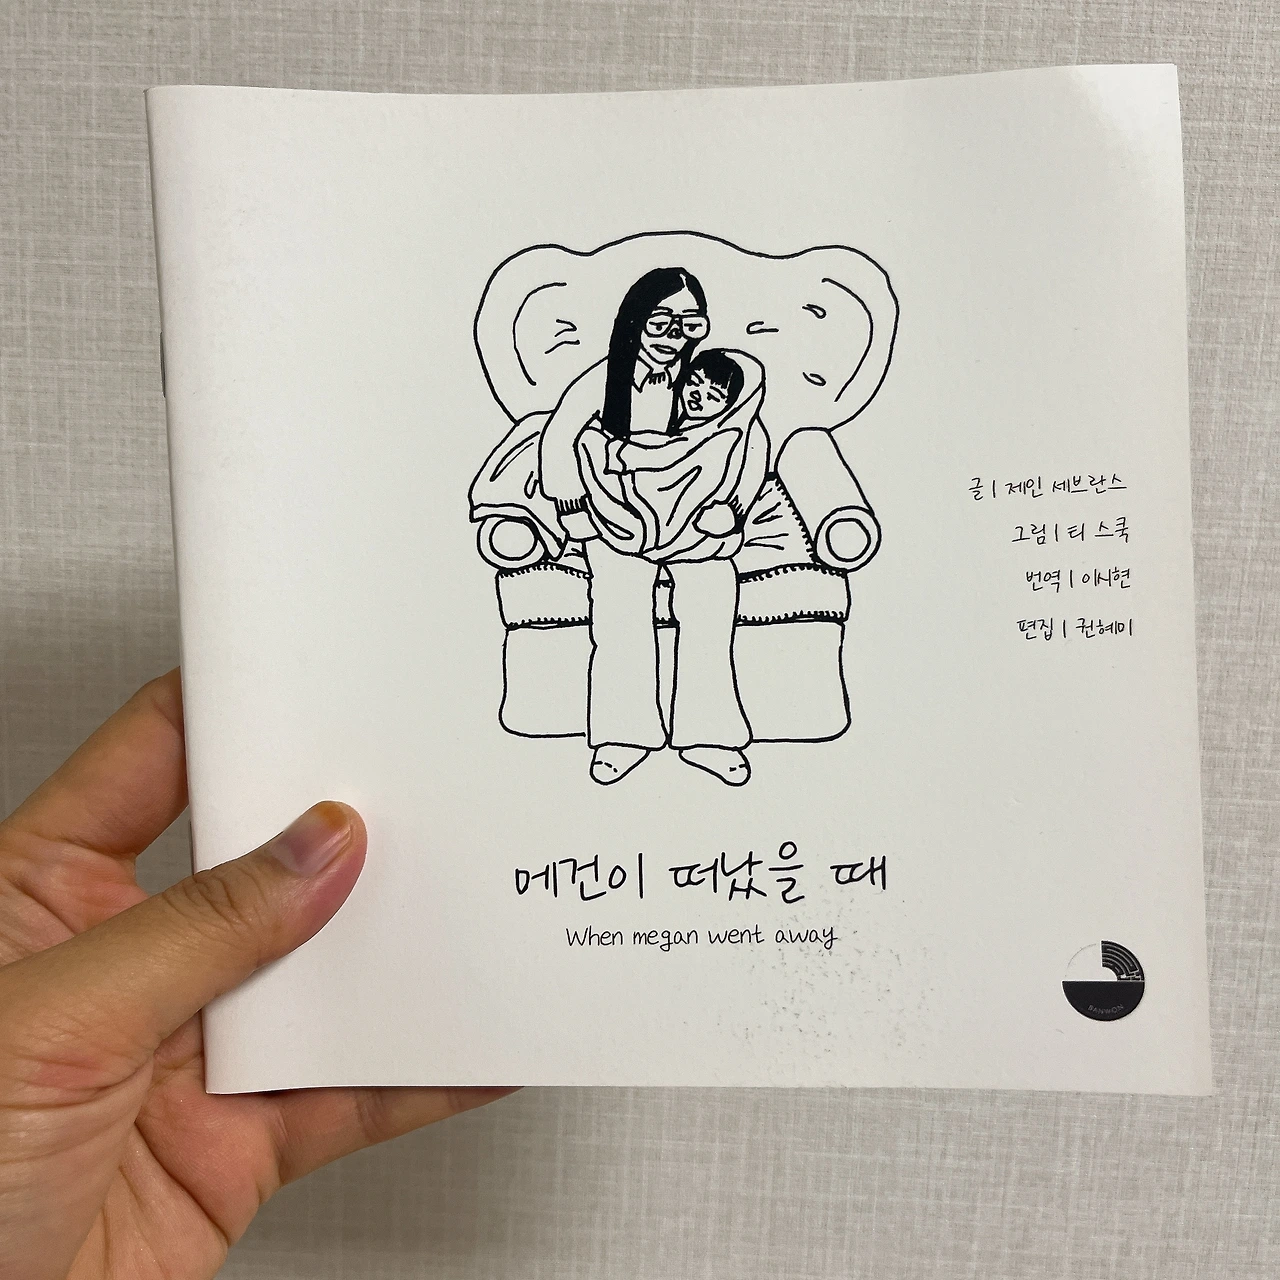 글 | 제인 세브란스
그림 | 티 스쿡
번역 | 이시현
편집 | 권혜미
메건이 떠났을 때
When megan went away
BANWON